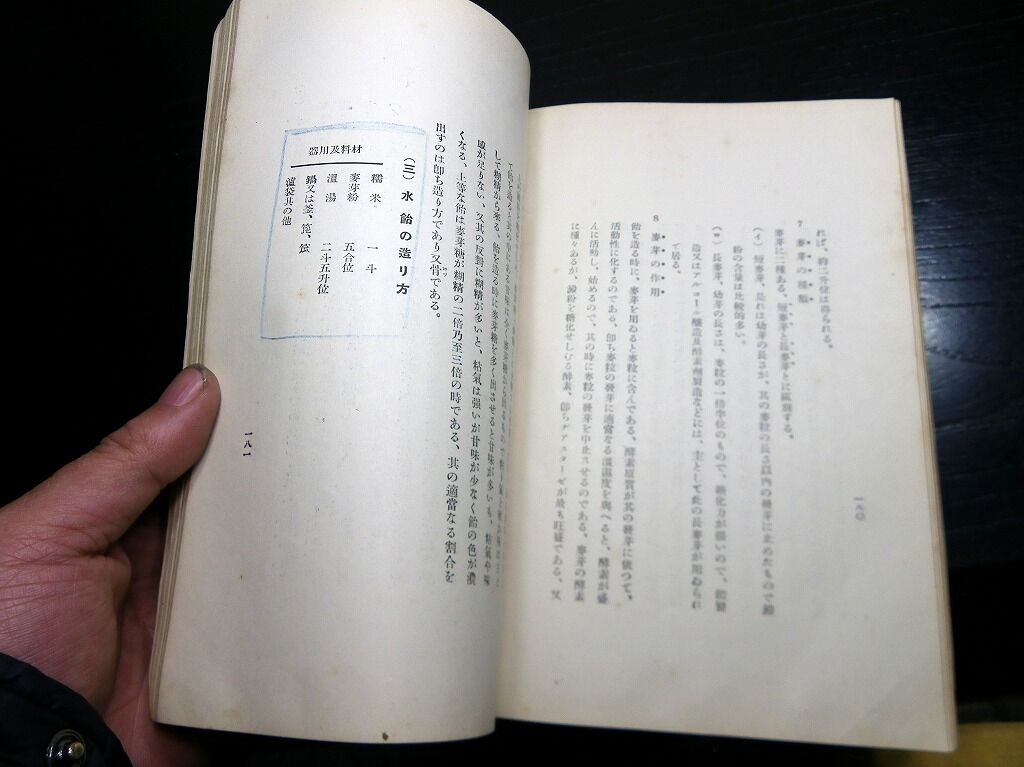 れば、約二升位は得られる。
7 麥芽の種類
麥芽に二種ある、短麥芽と長麥芽とに區別する。
(イ) 短麥芽、是れは幼芽の長さが、其の麥粒の長さ以內の發芽に止めたもので澱
粉の含量は比較的多い。
(ロ) 長麥芽、幼芽の長さは、麥粒の一倍半位のもので、糖化力が强いので、飴製
造又はアルコール釀造及酵素劑製造などには、主として此の長麥芽が用ゐられ
て居る。
8 麥芽の作用
飴を造る時に、麥芽を用ゐると麥粒に含んである、酵素原質が其の發芽に依つて、
活動性に化するのである、卽ち麥粒の發芽に適當なる溫濕度を與へると、酵素が盛
んに活動し、始めるので、其の時に麥粒の發芽を中止させるのである、麥芽の酵素
に種々あるが、澱粉を糖化せしむる酵素、卽ちヂアスターゼが最も旺盛である、又
一八〇
して糊精から來る、飴を造る時に麥芽糖を多く出させると甘味が多いも、粘氣や味
感が足りない、又其の反對に糊精が多いと、粘氣は强いが甘味が少なく飴の色が濃
くなる、上等な飴は麥芽糖が糊精の二倍乃至三倍の時である、其の適當なる割合を
出すのは卽ち造り方であり又骨である。
(三) 水飴の造り方
材料及用器
糯米 一斗
麥芽粉 五合位
溫湯 二斗五升位
鍋又は釜、箆、
濾袋其の他
一八一